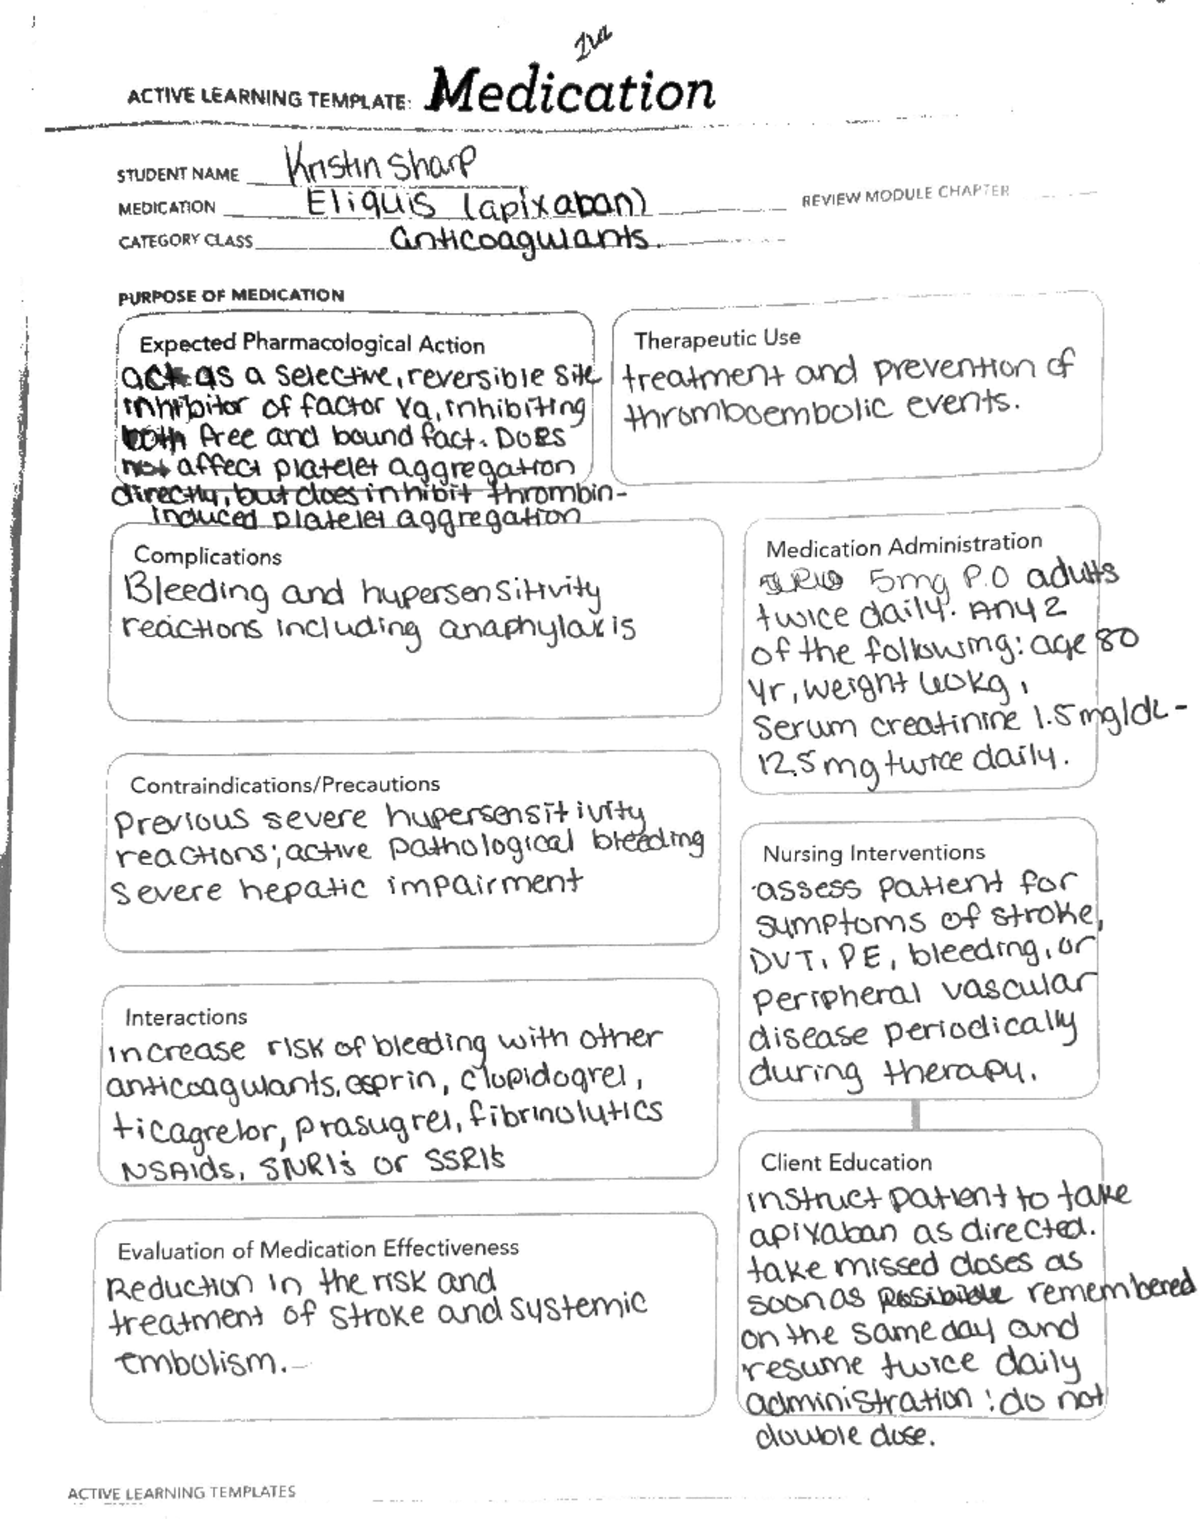 ACTIVE LEARNING TEMPLATE: Medication
STUDENT NAME Kristin Sharp
MEDICATION Eliquis (apixaban)
REVIEW MODULE CHAPTER
CATEGORY CLASS anticoagulants.
PURPOSE OF MEDICATION
Expected Pharmacological Action
act as a selective, reversible site
inhibitor of factor Xa, inhibiting
both free and bound fact. DOES
not affect platelet aggregation
directly, but does inhibit thrombin-
induced platelet aggregation
Therapeutic Use
treatment and prevention of
thromboembolic events.
Complications
Bleeding and hypersensitivity
reactions including anaphylaxis
Medication Administration
5mg P.O adults
twice daily. Any 2
of the following: age 80
yr, weight 60kg,
Serum creatinine 1.5mg/dL -
12.5mg twice daily.
Contraindications/Precautions
previous severe hypersensitivity
reactions; active pathological bleeding
severe hepatic impairment
Nursing Interventions
assess patient for
symptoms of stroke,
DVT, PE, bleeding, or
peripheral vascular
disease periodically
during therapy.
Interactions
increase risk of bleeding with other
anticoagulants, asprin, clopidogrel,
ticagrelor, prasugrel, fibrinolytics
NSAIDs, SNRI's or SSRI's
Client Education
instruct patient to take
apixaban as directed.
take missed doses as
soon as remembered
on the same day and
resume twice daily
administration: do not
double dose.
Evaluation of Medication Effectiveness
Reduction in the risk and
treatment of stroke and systemic
embolism.
ACTIVE LEARNING TEMPLATES